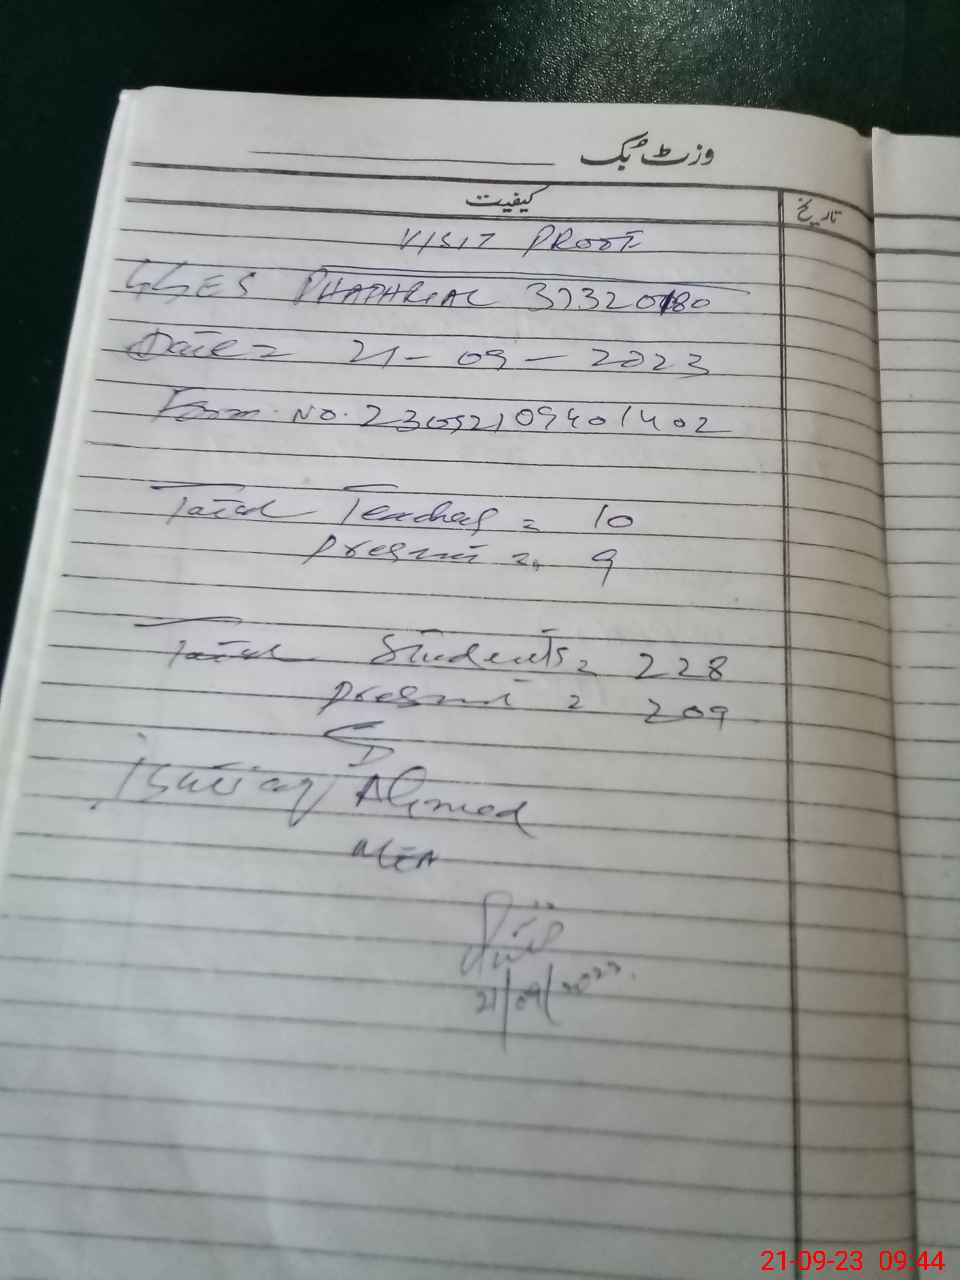 وزٹ بک
کیفیت
تاریخ
VISIT PROOF
GGES PHAPHRIAL 37320180
Date = 21-09-2023
Form No. 23092109401402
Total Teachers = 10
present = 9
Total Students = 228
present = 209
Ishtiaq Ahmed
MEA
21/09/2023.
21-09-23 09:44